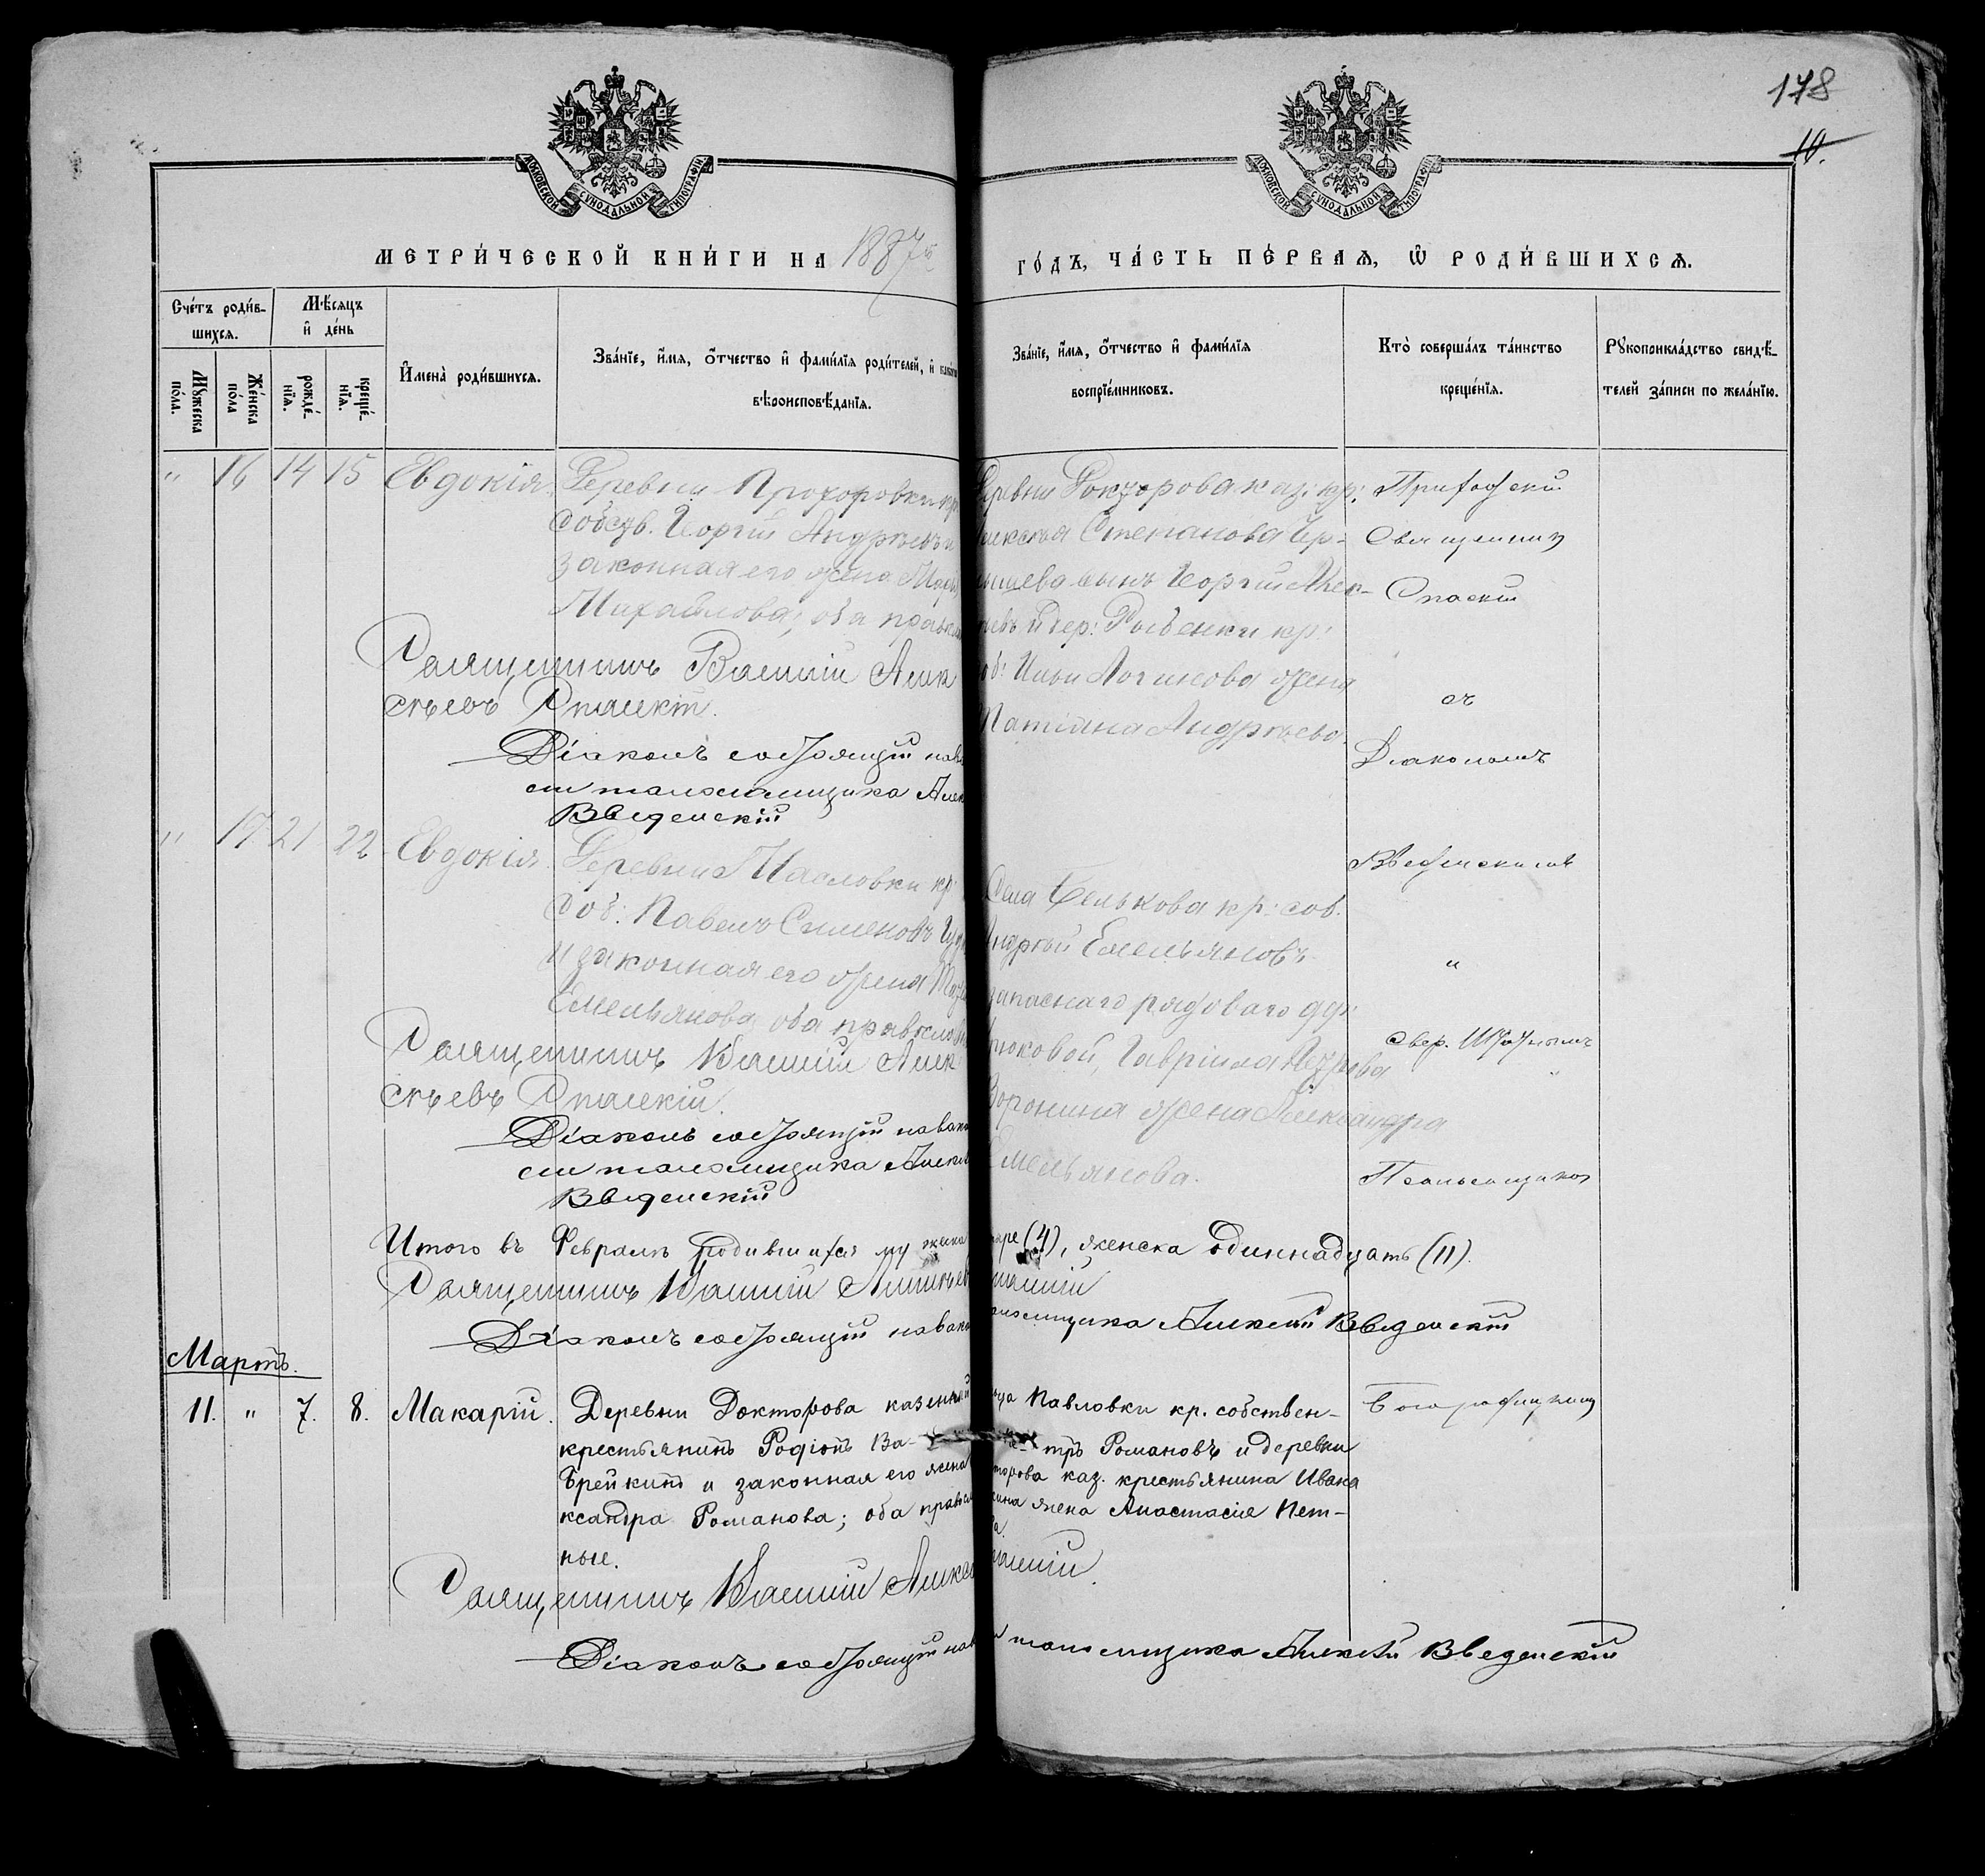 178
10.
МОСКОВСКОЙ СѴНОДАЛЬНОЙ ТИПОГРАФІИ
МОСКОВСКОЙ СѴНОДАЛЬНОЙ ТИПОГРАФІИ
МЕТРИ́ЧЕСКОЙ КНИ́ГИ НА 1887й
ГО́ДЪ, ЧА́СТЬ ПЕ́РВАѦ, Ѡ҆ РОДИ́ВШИХСѦ.
Сче́тъ роди́в-
шихсѧ.
Мѣ́сѧцъ
и҆ де́нь
Мꙋ́жеска по́ла.
Же́нска по́ла
рожде́-
нїѧ.
креще́-
нїѧ.
И҆мена̀ роди́вшихсѧ.
Зва́нїе, и҆́мѧ, о҆́тчество и҆ фами́лїѧ роди́телей, и҆
вѣроисповѣ́данїѧ.
Зва́нїе, и҆́мѧ, о҆́тчество и҆ фами́лїѧ
воспрїе́мниковъ.
Кто̀ соверша́лъ та́инство
креще́нїѧ.
Рꙋкоприкла́дство свидѣ́-
телей за́писи по жела́нїю.
" 16 14 15 Евдокія.
Деревни Прохоровки кр.
собств. Георгій Андреевъ и
законная его жена
Михайлова; оба правосл
Деревни Докторова каз: кр:
Алексѣя Степанова
сынъ Георгій Алек-
дер: кр:
соб: Ильи Логинова жена
Татіяна Андреева.
Приходскій
Священникъ
Спаскій
съ
Діакономъ
Введенскимъ
Священникъ Василій Алек
сѣевъ Спаскій.
Діаконъ состоящій на вак
сіи псаломщика Алек
Введенскій
" 17 21 22 Евдокія
Деревни Павловки кр:
соб: Павелъ Симеоновъ
и законная его жена
Емельянова, оба православ
Села Белькова кр: соб.
Андрей Емельяновъ
и
запаснаго рядоваго дер:
Крюковой, Гавріила Петрова
Воронина жена Александра
Емельянова.
Псаломщикъ
Священникъ Василій Алек
сѣевъ Спаскій.
Діаконъ состоящій на вакан
сіи псаломщика Алек
Введенскій
Итого въ Февралѣ родившихся мужеска
(4), женска одиннадцать (11).
Священникъ Василій Алексѣев Спаскій
Діаконъ состоящій на вакан псаломщика Алексѣй Введенскій
Мартъ.
11. " 7. 8. Макарій.
Деревни Докторова казенный
крестьянинъ Родіонъ Ва-
и законная его жена
ксандра Романова; оба правосл
ные.
Павловки кр. собствен-
тръ Романовъ и деревни
торова каз. крестьянина Ивана
кина жена Анастасія Пет-
ва.
Священникъ Василій Алексѣ Спаскій.
Діаконъ состоящій на вак псаломщика Алексѣй Введенскій